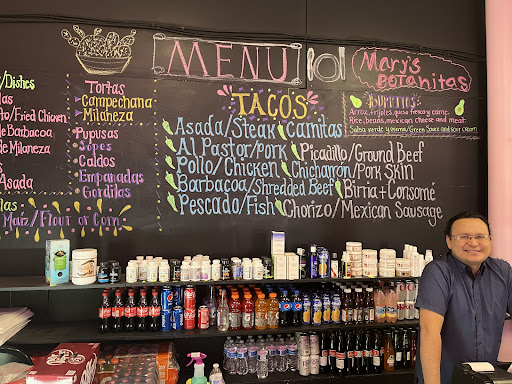 MENU
Mary's
BOTANITAS
/Dishes
/Fried Chicken
de Barbacoa
de Milaneza
Asada
Maiz/Flour or Corn
TORTAS
CAMPECHANA
MILANEZA
PUPUSAS
SOPES
CALDOS
EMPANADAS
GORDITAS
TACOS
Asada/Steak
Al Pastor/pork
Pollo/Chicken
Barbacoa/Shredded Beef
Pescado/Fish
Carnitas
Picadillo/Ground Beef
Chicharron/Pork Skin
Birria + Consome
Chorizo/Mexican Sausage
BURRITOS
Arroz, frijoles, queso fresco y carne.
Rice, beans, mexican cheese and meat.
Salsa verde y crema/Green Sauce and sour cream